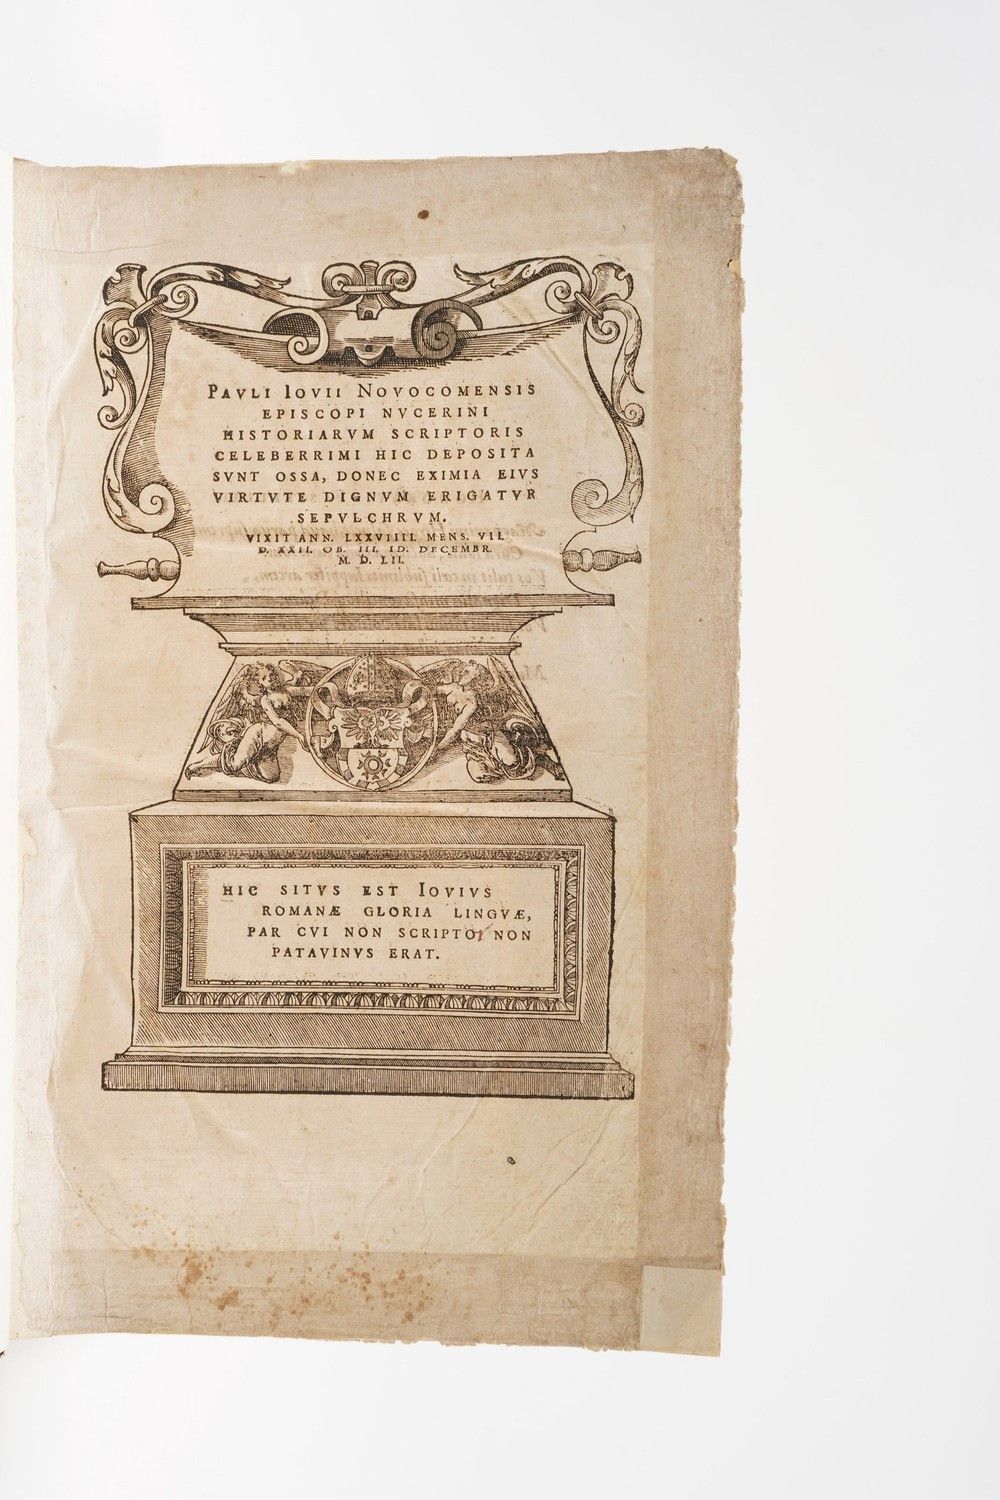 PAVLI IOVII NOVOCOMENSIS
EPISCOPI NVCERINI
HISTORIARVM SCRIPTORIS
CELEBERRIMI HIC DEPOSITA
SVNT OSSA, DONEC EXIMIA EIVS
VIRTVTE DIGNVM ERIGATVR
SEPVLCHRVM.
VIXIT ANN. LXXVIIII. MENS. VII.
D. XXII. OB. III. ID. DECEMBR.
M. D. LII.
HIC SITVS EST IOVIVS
ROMANÆ GLORIA LINGVÆ,
PAR CVI NON SCRIPTOR NON
PATAVINVS ERAT.